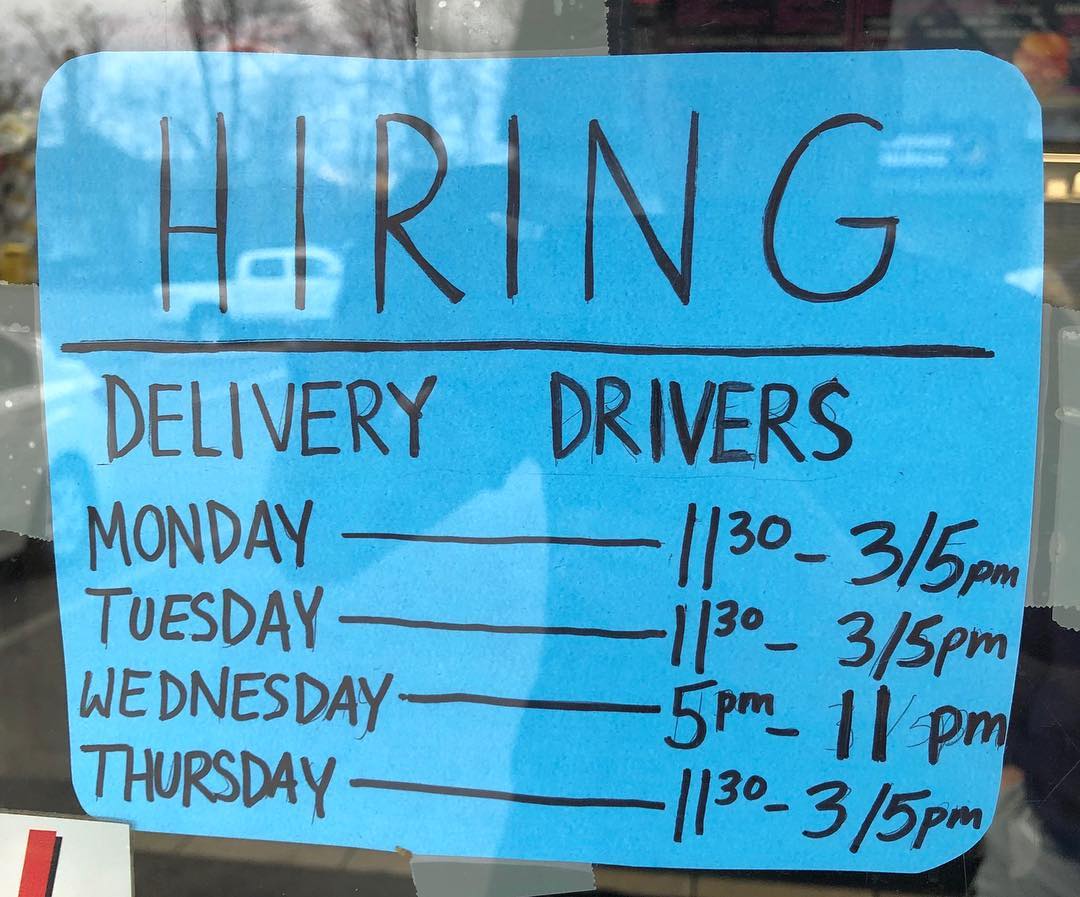 HIRING
DELIVERY DRIVERS
MONDAY — 11³⁰ - 3/5pm
TUESDAY — 11³⁰ - 3/5pm
WEDNESDAY — 5pm - 11 pm
THURSDAY — 11³⁰ - 3/5pm